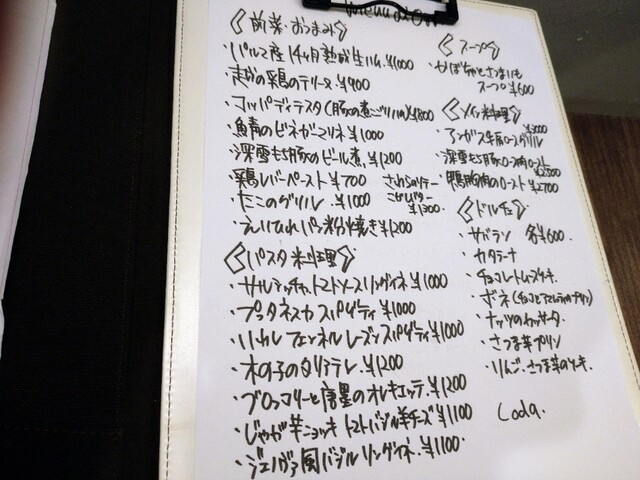 menu don
〈前菜・おつまみ〉
・パルマ産14ヶ月熟成生ハム ¥1000
鶏のテリーヌ ¥900
・コッパディテスタ(豚の煮こごり) ¥800
・鯖のビネガーマリネ ¥1000
・深雪もち豚のビール煮 ¥1200
・鶏レバーペースト ¥700
・たこのグリル ¥1000
さわらのソテー
こがしバター
¥1300
・えいひれパン粉焼き ¥1200
〈パスタ料理〉
・サルシッチャ、トマトソース リングイネ ¥1000
・プッタネスカ スパゲティ ¥1000
・いわし フェンネル レーズン スパゲティ ¥1000
・木の子のタリアテレ ¥1200
・ブロッコリーと唐墨のオレキエッテ ¥1200
・じゃが芋ニョッキ トマトバジル羊チーズ ¥1100
・ジェノヴァ風バジル リングイネ ¥1100
〈スープ〉
・かぼちゃとさつまいも
スープ ¥600
〈メイン料理〉
¥3000
・アンガス牛肩ロースグリル
・深雪もち豚ロース肉ロースト
¥2500
・鴨胸肉のロースト ¥2700
〈ドルチェ〉
・サバラン 各¥600
・カタラーナ
・チョコレートムースケーキ
・ボネ(チョコとアマレッティのプリン)
・ナッツのカッサータ
・さつま芋プリン
・りんご、さつま芋のケーキ
Coda.